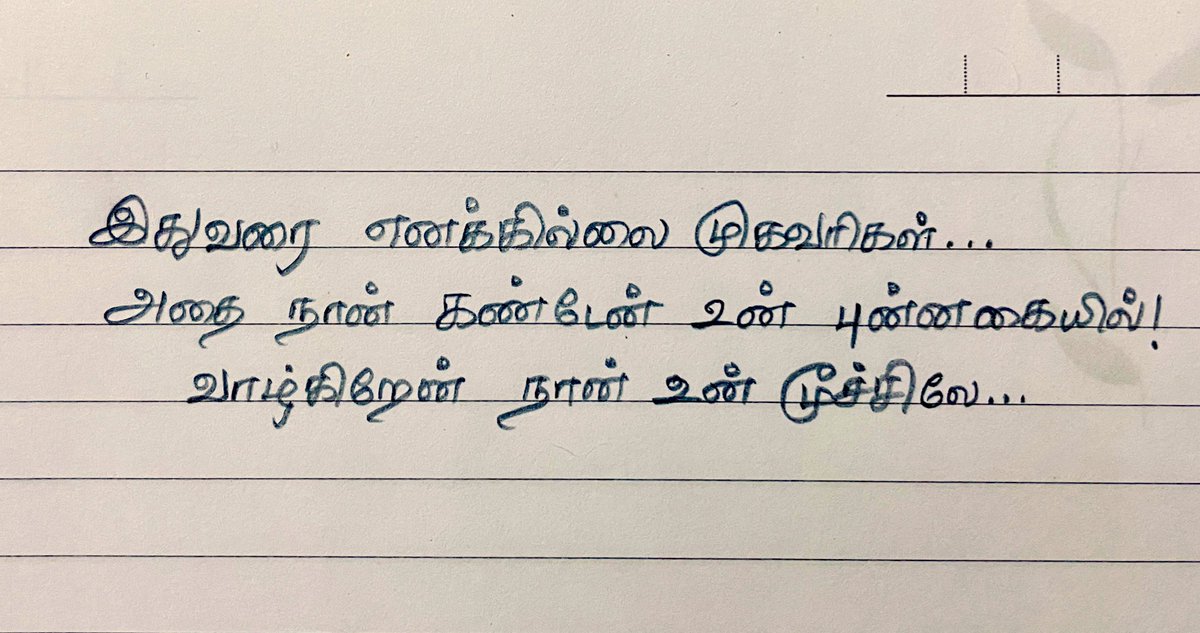 இதுவரை எனக்கில்லை முகவரிகள்...
அதை நான் கண்டேன் உன் புன்னகையில்!
வாழ்கிறேன் நான் உன் மூச்சிலே...